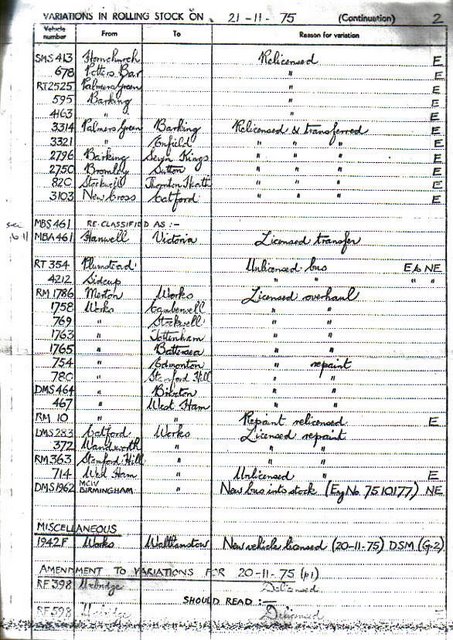 VARIATIONS IN ROLLING STOCK ON 21-11-75 (Continuation) 2
Vehicle number From To Reason for variation
SMS 413 Hornchurch Relicensed E
678 Potters Bar " E
RT2525 Palmers Green " E
595 Barking " E
4163 " " E
3314 Palmers Green Barking Relicensed & transferred E
3321 " Enfield " " " E
2796 Barking Seven Kings " " " E
2750 Bromley Sutton " " " E
820 Stockwell Thornton Heath " " " E
3103 New Cross Catford " " " E
MBS 461 RE-CLASSIFIED AS :-
MBA 461 Hanwell Victoria Licensed transfer
RT 354 Plumstead Unlicensed bus E to NE
4212 Sidcup " " " "
RM 1786 Merton Works Licensed overhaul
1758 Works Camberwell " "
769 " Stockwell " "
1763 " Tottenham " "
1765 " Battersea " "
754 " Edmonton " repaint
780 " Stamford Hill " "
DMS 464 " Brixton " "
467 " West Ham " "
RM 10 " " Repaint relicensed E
DMS 283 Catford Works Licensed repaint
372 Wandsworth " " "
RM 363 Stamford Hill " " "
714 West Ham " Unlicensed " E
DMS 1962 MCW BIRMINGHAM " New bus into stock (Eng No. 7510177) NE
MISCELLANEOUS
1942F Works Walthamstow New vehicle licensed (20-11-75) DSM (G.2)
AMENDMENT TO VARIATIONS FOR 20-11-75 (p1)
RF 398 Uxbridge Delicensed
SHOULD READ :-
RF 598 Uxbridge Delicensed